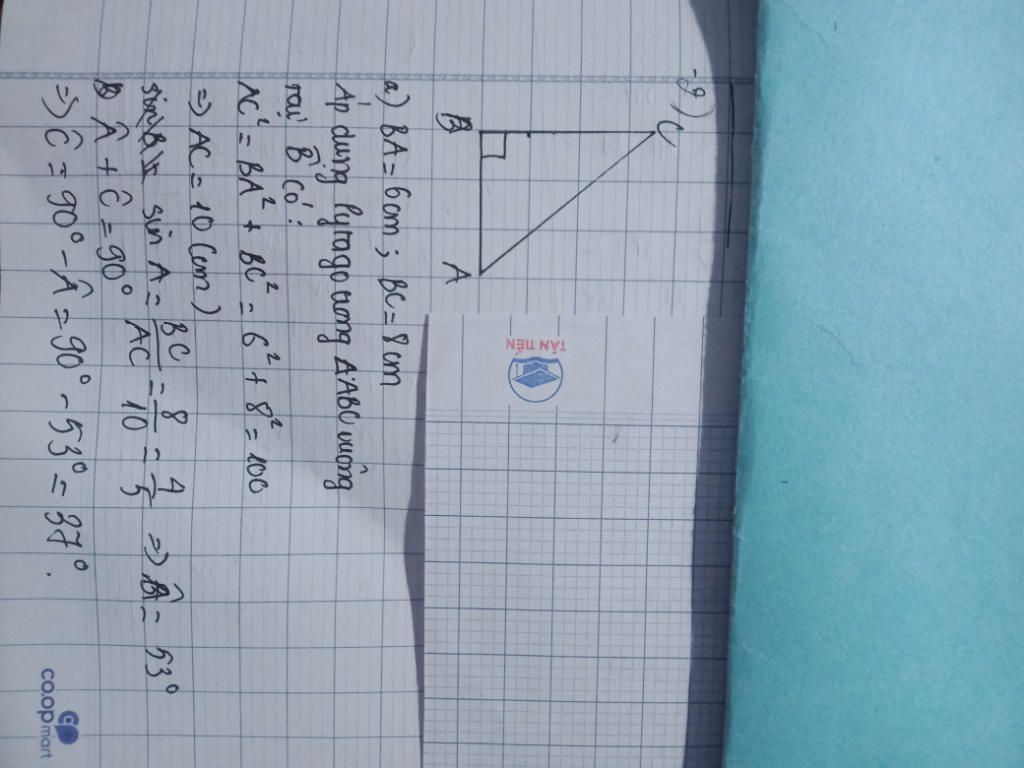 9)
C
B
A
a) BA = 6cm ; BC = 8cm
Áp dụng Pytago trong ΔABC vuông
tại B̂ có:
AC² = BA² + BC² = 6² + 8² = 100
=> AC = 10 (cm)
sin A = BC/AC = 8/10 = 4/5 => Â = 53°
Â + Ĉ = 90°
=> Ĉ = 90° - Â = 90° - 53° = 37°.
TÂN TIẾN
co.opmart